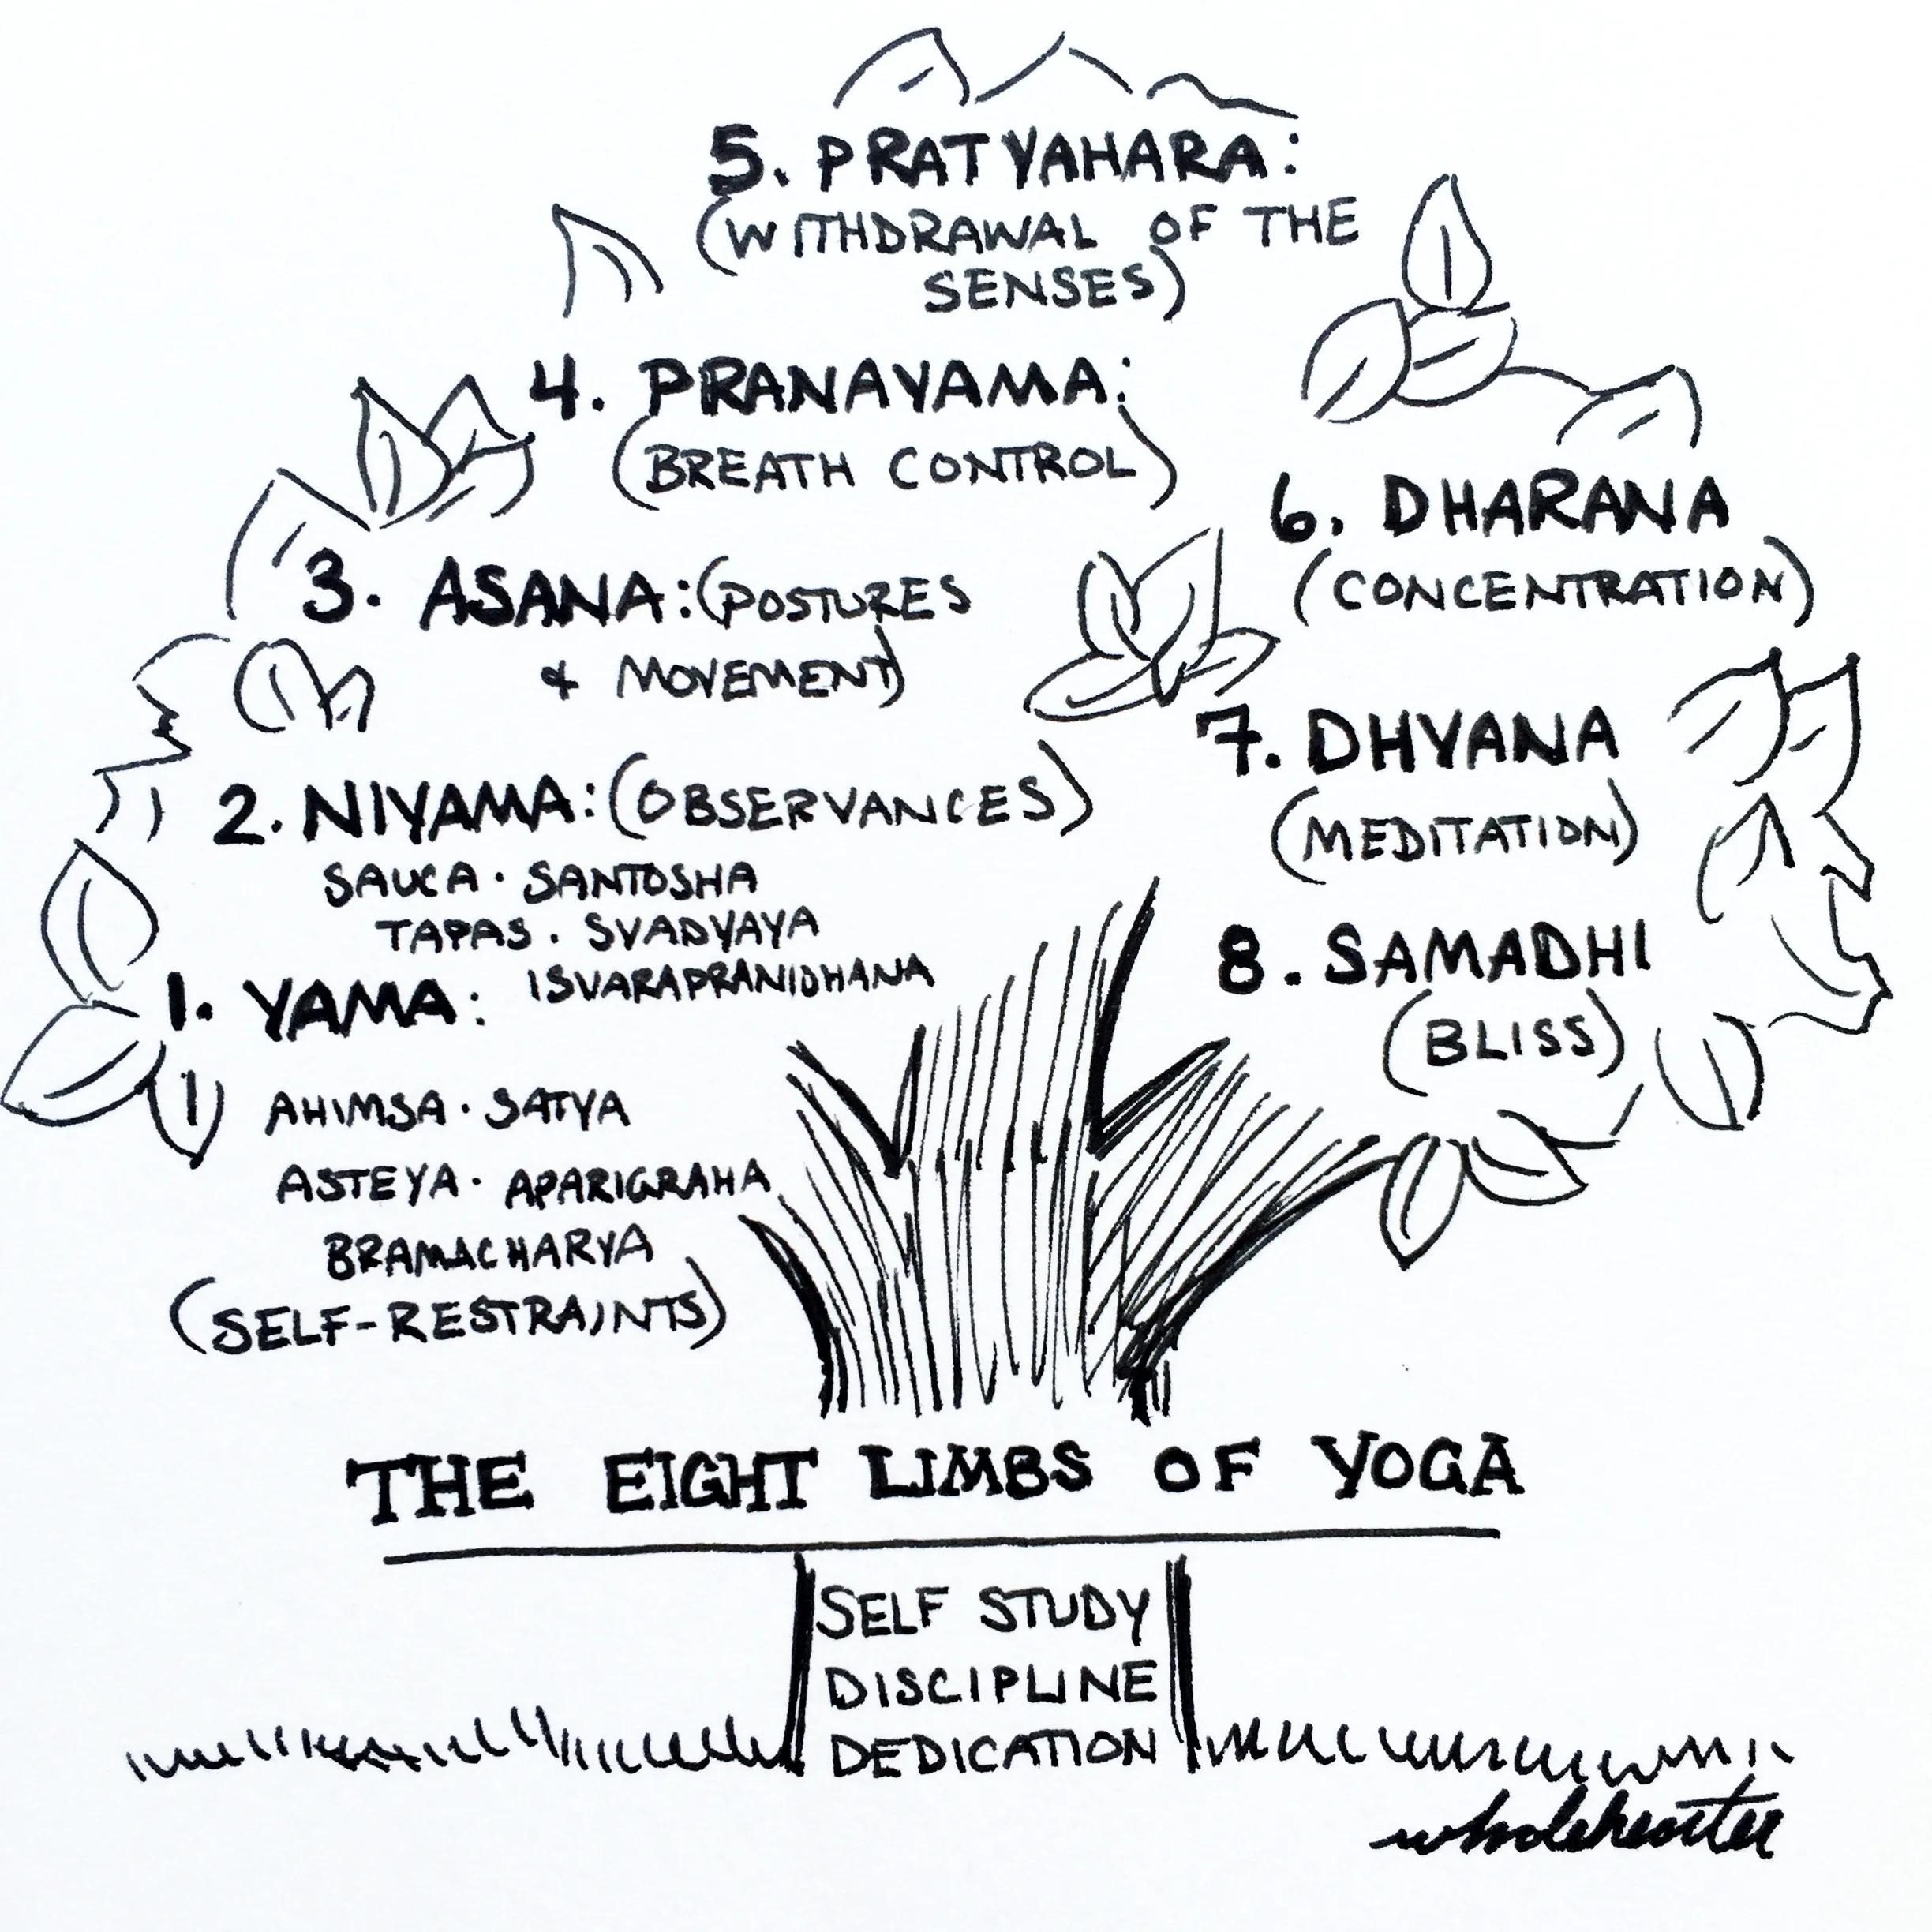 5. PRATYAHARA:
(WITHDRAWAL OF THE
SENSES)
4. PRANAYAMA:
(BREATH CONTROL)
3. ASANA: (POSTURES
& MOVEMENT)
2. NIYAMA: (OBSERVANCES)
SAUCA · SANTOSHA
TAPAS · SVADYAYA
ISVARAPRANIDHANA
1. YAMA:
AHIMSA · SATYA
ASTEYA · APARIGRAHA
BRAMACHARYA
(SELF-RESTRAINTS)
6. DHARANA
(CONCENTRATION)
7. DHYANA
(MEDITATION)
8. SAMADHI
(BLISS)
THE EIGHT LIMBS OF YOGA
SELF STUDY
DISCIPLINE
DEDICATION